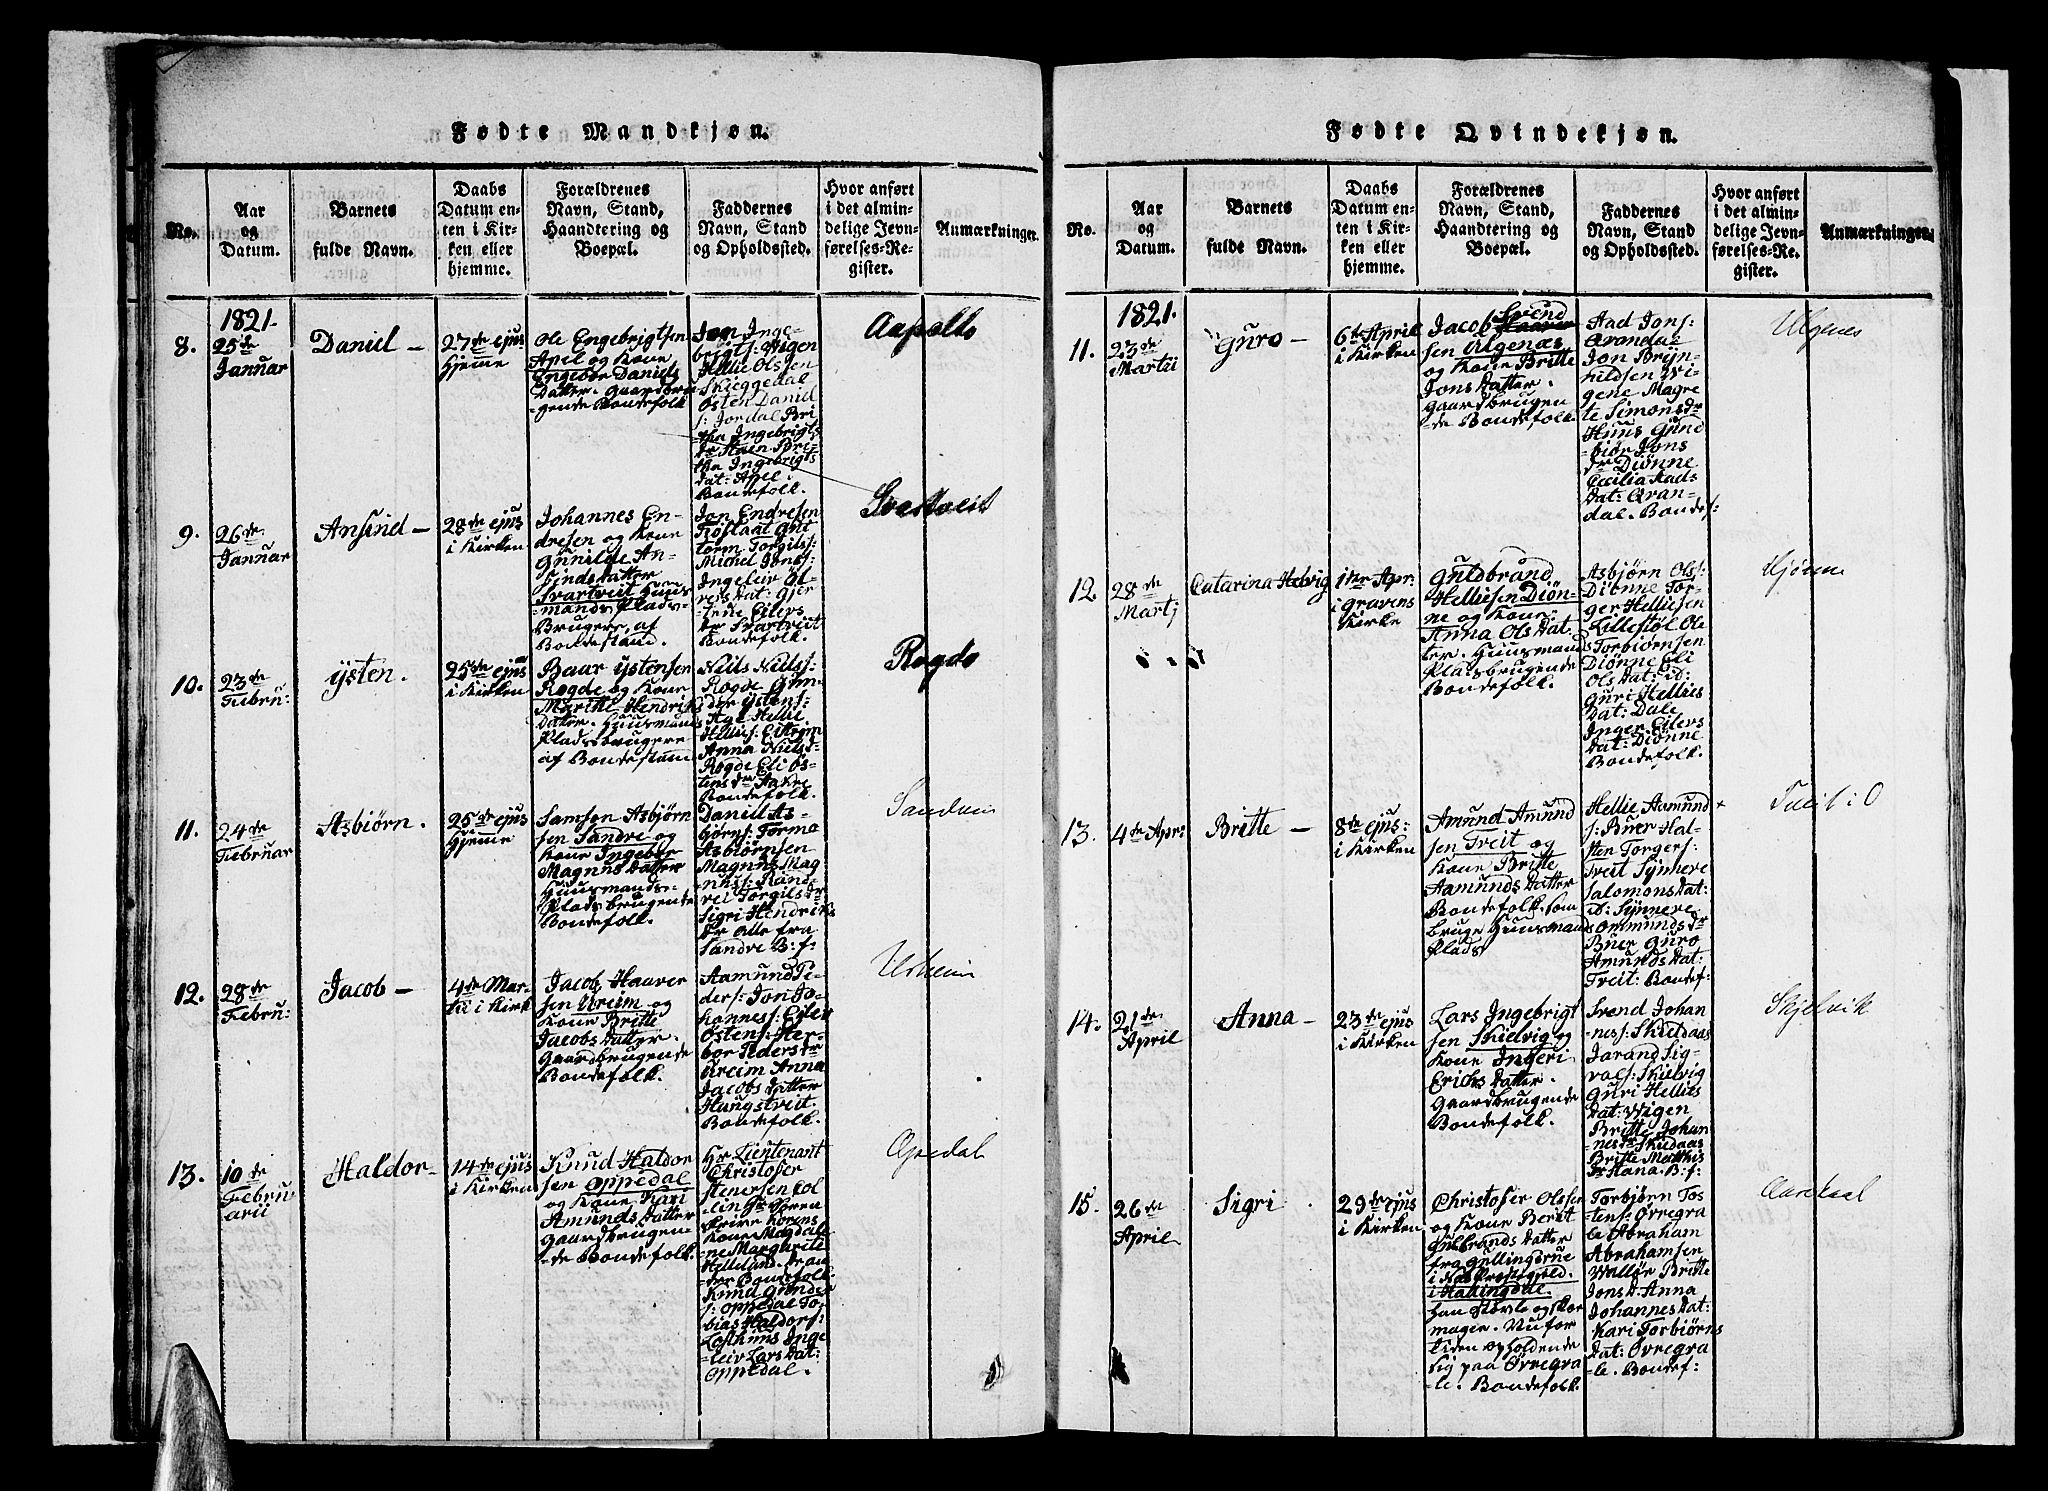 Fødte Mandkjøn.
No.
Aar
og
Datum.
Barnets
fulde Navn.
Daabs
Datum en-
ten i Kir-
ken eller
hjemme.
Forældrenes
Navn, Stand,
Haandtering og
Boepæl.
Faddernes
Navn, Stand
og Opholdssted.
Hvor anført
i det almin-
delige Jevn-
førelses-Re-
gister.
Anmærkninger.
1821.
8.
25de
Januar
Daniel –
27de ejus
Hjeme
Ole Engebrigtsen
Apel og Kone
Engebor Daniels
Datter. Gaardbru
-gende Bondefolk
Jon Inge-
brigts: Aigen
Hellie Olssen
Skieggedal
Østen Daniel
s: Jordal Bri
-tha Ingebrigts
dr Stæen Bri-
tha Ingebrigts
dat: Apel.
Bondefolk.
Aapolto
9.
26de
Januar
Ansind –
28de ejus
i Kirken
Johannes En-
dresen og Kone
Gunilde An-
sindsdatter
Svartveit Huus-
mands Plads-
Brugere, af
Bondestand.
Jon Endresen
Røstaat Gut
torm Torgils:
Michel Jons:
Ingeleir Ol-
versdat: Gjer
trede Eilers
dr Svartveit
Bondefolk.
10.
23de
Febru:
Ysten.
25de ejus
i Kirken
Baar Ystensen
Rogde og Kone
Marithe Hendrik
datter. Huusmands
Pladsbrugere
af Bondestann
Niels Niels:
Rogde Gun-
der Ystens:
Aga Hellie
Hellies: Eitreim
Anna Niels-
Rogde Eli Øs-
tens dr Aakre
Bondefolk.
Rogde
11.
24de
Februar
Asbiørn.
25de ejus
Hjemme
Samson Asbiørn
sen Sandre og
Kone Ingebor
Magnus Datter
Huusmands-
Pladsbrugende
Bondefolk.
Daniel As-
biørns: Tormo
Asbiørnsen
Magnus Mag-
nus: Ran-
vei Torgilsdr
Sigri Hendriks
dr alle fra
Sandre B: f:
Sandven
12.
28de
Febru:
Jacob –
4de Mar-
tii i Kirk
Jacob Haaver
sen Ureim og
Kone Britte
Jacobs Datter.
Gaardbrugende
Bondefolk.
Aamund Pe-
ders: Jon Jo-
hannes: Eiler
Østens: Her-
bor Pedersdr
Ureim Anna
Jacobs Datter
Hangstveit.
Bondefolk.
Urheim
13.
10de
Febru
arii
Haldor–
14de ejus
i Kirken
Knud Haldor
sen Oppedal
og Kone Kari
Amunds Datter
Gaardbrugen
-de Bondefolk.
Hr Lieutenant
Christofer
Stenersen Col
lin Hr Søren
Kone Magdale
ne Margrethe
Helleland.
Knud Gunder
s: Oppedal To-
bias Haldors:
Lofthuus Inge
-leiv Lars Dat:
Oppedal.
Opedal
Fødte Qvindekjøn.
No.
Aar
og
Datum.
Barnets
fulde Navn.
Daabs
Datum en-
ten i Kir-
ken eller
hjemme.
Forældrenes
Navn, Stand,
Haandtering og
Boepæl.
Faddernes
Navn, Stand
og Opholdssted.
Hvor anført
i det almin-
delige Jevn-
førelses-Re-
gister.
Anmærkninger.
1821.
11.
23de
Martii
Guro –
6te April
i Kirken
Jacob Svend
sen Algenæs
og Kone Britte
Jons Datter.
Gaardbrugen
-de Bondefolk.
Aad Jons:
Qvandal
Jon Bryn-
hildsen Vi-
gene Magre
te Simonsdr
Huus Gund
-biør Jons
dr Diønne
Cecilia Aads
Dat: Qvan-
dal. Bondef:
12.
28de
Martj
Catarina Helvig
1ste Apr:
i Gravens
Kirke
Guldbrand
Helliesen Diøn-
ne og Kone
Anna Ols Dat
ter. Huusmands
Pladsbrugende
Bondefolk.
Asbjørn Ols:
Diønne Tor-
ger Helliesen
Lillestøl Ole
Torbiørnsen
Diønne Eli
Ols Dat: ib:
Guri Hellies
Dat: Dale
Inger Eilers
Dat: Diønne
Bondefolk.
13.
4de Apr:
Britte –
8de ejus:
i Kirken
Amund Amund
sen Tveit og
Kone Britte
Aamunds Datter
Bondefolk. som
bruge Huusmands
Plads
Hellie Aamund
s: Buer Hal-
sten Torgers:
Tveit Synnere
Salomons Dat:
ib: Synnere
Ommunds dr
Buer Guro
Amunds Dat:
Tveit: Bondef:
Tveit i O
14.
21de
April
Anna –
23de ejus
i Kirken
Lars Ingebrigt
sen Skielvig og
Kone Ingeri
Erichs Datter.
Gaardbrugende
Bondefolk.
Svend Johan
nes: Skieldaas
Jarand Sig-
vals: Skielvig
Guri Hellies
Dat: Wigen
Britte Johan
nesdr Skieldaas
Britte Matthis
dr Hana. B: f:
Skjelvik
15.
26de
April
Sigri
29de ejus
i Kirken
Christofer Olssen
og Kone Berit
Gulbrands Datter
fra Gullingsrue
i Næs Prestegield.
i Hallingdal.
han Støvle og Skoe
mager. Nu for
tiden opholdende
sig paa Øvregra
-le. Bondefolk.
Torbjørn Tos
tens: Øvregra
le Abraham
Abrahamsen
Walløe Britte
Jons D. Anna
Johannes Dat:
Kari Torbiørns
Dat: Øvregra-
le. Bondef: